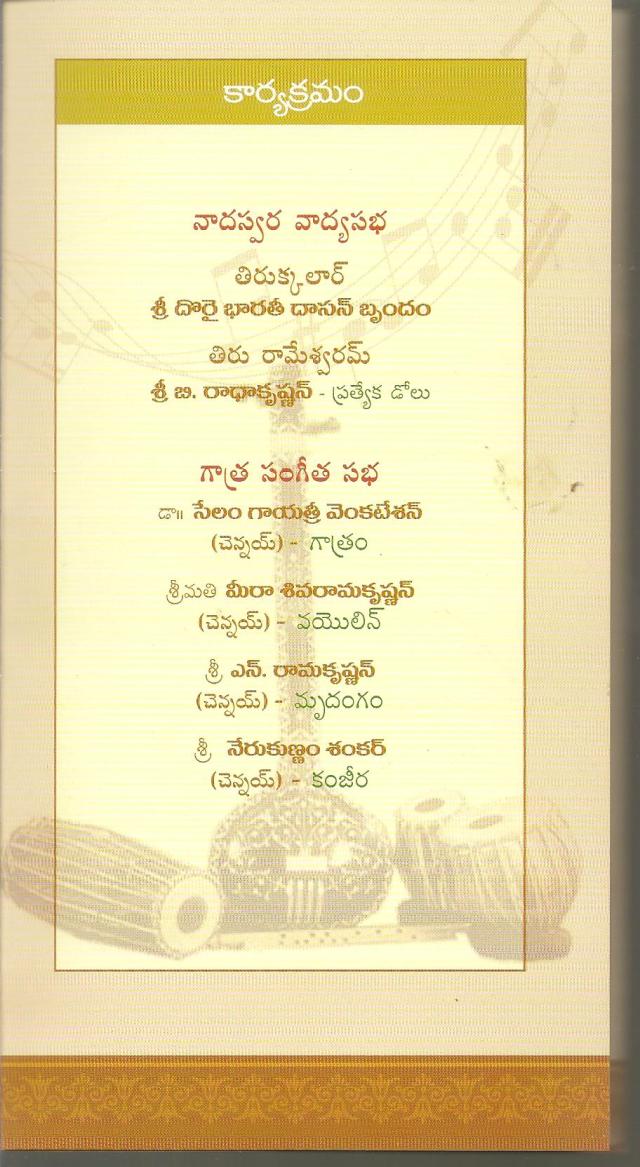 కార్యక్రమం
నాదస్వర వాద్యసభ
తిరుక్కలార్
శ్రీ దొరై భారతీ దాసన్ బృందం
తిరు రామేశ్వరమ్
శ్రీ బి. రాధాకృష్ణన్ - ప్రత్యేక డోలు
గాత్ర సంగీత సభ
డా॥ సేలం గాయత్రీ వెంకటేశన్
(చెన్నయ్) - గాత్రం
శ్రీమతి మీరా శివరామకృష్ణన్
(చెన్నయ్) - వయొలిన్
శ్రీ ఎన్. రామకృష్ణన్
(చెన్నయ్) - మృదంగం
శ్రీ నేరుకుణ్ణం శంకర్
(చెన్నయ్) - కంజీర